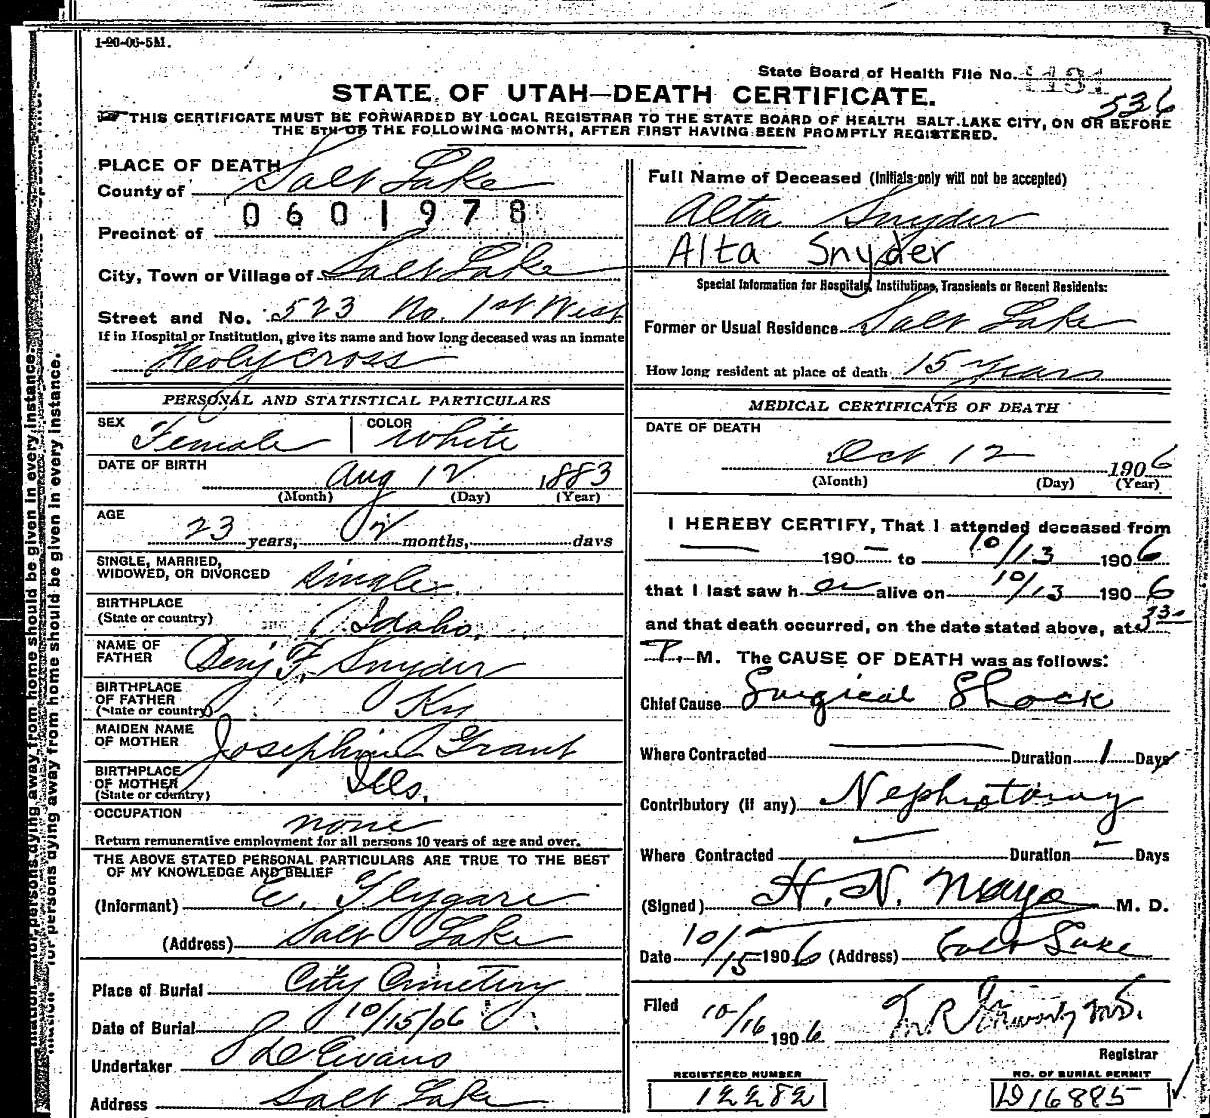 1-20-06-5M.
State Board of Health File No. 1191
536
STATE OF UTAH—DEATH CERTIFICATE.
THIS CERTIFICATE MUST BE FORWARDED BY LOCAL REGISTRAR TO THE STATE BOARD OF HEALTH SALT LAKE CITY, ON OR BEFORE
THE 5TH OF THE FOLLOWING MONTH, AFTER FIRST HAVING BEEN PROMPTLY REGISTERED.
PLACE OF DEATH
County of Salt Lake
0601978
Precinct of
City, Town or Village of Salt Lake
Street and No. 523 No. 1st West
If in Hospital or Institution, give its name and how long deceased was an inmate
Holy cross
PERSONAL AND STATISTICAL PARTICULARS
SEX Female COLOR White
DATE OF BIRTH Aug 12 1883
(Month) (Day) (Year)
AGE
23 years, 2 months, days
SINGLE, MARRIED,
WIDOWED, OR DIVORCED Single
BIRTHPLACE
(State or country) Idaho
NAME OF
FATHER Benj F. Snyder
BIRTHPLACE
OF FATHER
(State or country) Ky
MAIDEN NAME
OF MOTHER Josephine Grant
BIRTHPLACE
OF MOTHER
(State or country) Ills.
OCCUPATION none
Return remunerative employment for all persons 10 years of age and over.
THE ABOVE STATED PERSONAL PARTICULARS ARE TRUE TO THE BEST
OF MY KNOWLEDGE AND BELIEF
(Informant) E. Flygare
(Address) Salt Lake
Place of Burial City Cemetery
Date of Burial 10/15/06
Undertaker Evans
Address Salt Lake
Full Name of Deceased (Initials only will not be accepted)
Alta Snyder
Alta Snyder
Special Information for Hospitals, Institutions, Transients or Recent Residents:
Former or Usual Residence Salt Lake
How long resident at place of death 15 Years
MEDICAL CERTIFICATE OF DEATH
DATE OF DEATH
Oct 12 1906
(Month) (Day) (Year)
I HEREBY CERTIFY, That I attended deceased from
— 190 — to 10/13 1906
that I last saw h er alive on 10/13 190 6
and that death occurred, on the date stated above, at 3 30
P. M. The CAUSE OF DEATH was as follows:
Chief Cause Surgical Shock
Where Contracted — Duration 1 Days
Contributory (if any) Nephrotomy
Where Contracted — Duration — Days
(Signed) H. N. Mayo M. D.
Date 10/15 1906 (Address) Salt Lake
Filed 10/16 1906
Registrar
REGISTERED NUMBER
12282
NO. OF BURIAL PERMIT
D16885
for persons dying away from home should be given in every instance.